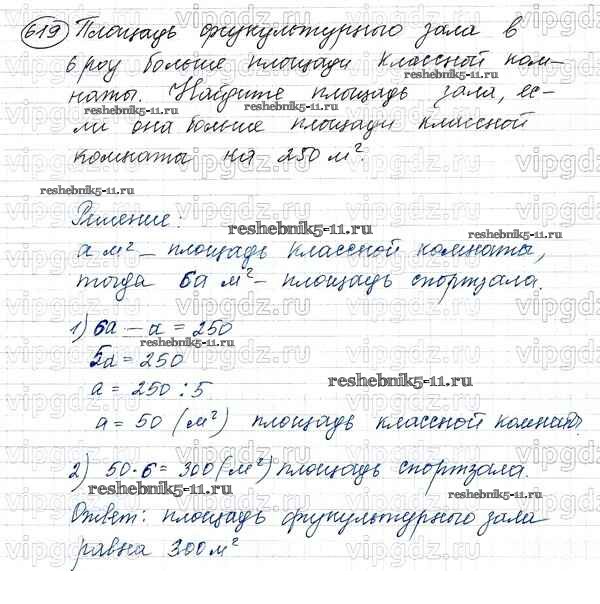 619 Площадь физкультурного зала в
6 раз больше площади классной ком-
наты. Найдите площадь зала, ес-
ли она больше площади классной
комнаты на 250 м².
reshebnik5-11.ru
Решение:
а м² – площадь классной комнаты,
тогда 6а м² – площадь спортзала.
1) 6а – а = 250
5а = 250
а = 250 : 5
а = 50 (м²) площадь классной комнаты
2) 50·6 = 300 (м²) площадь спортзала.
Ответ: площадь физкультурного зала
равна 300 м²
vipgdz.ru